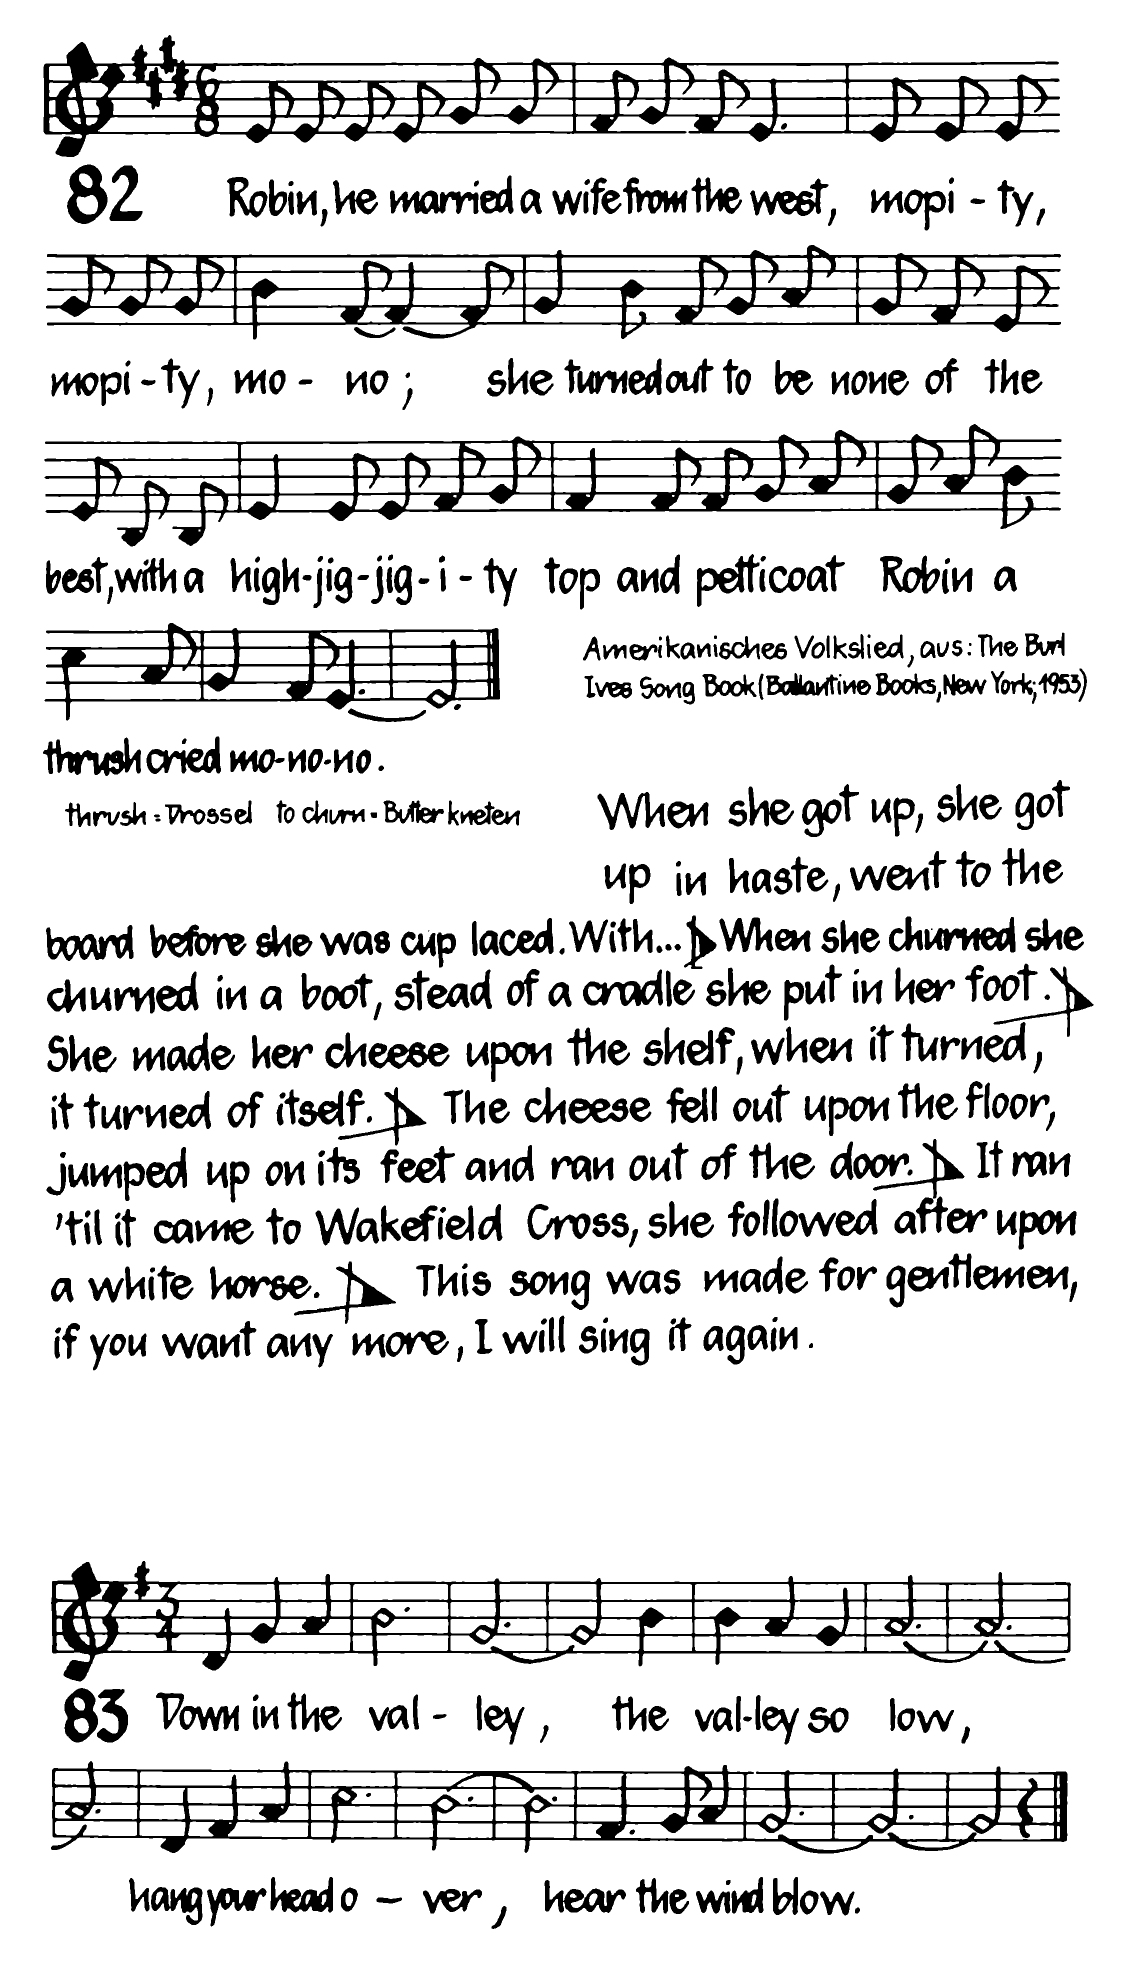 6
8
82 Robin, he married a wife from the west, mopi - ty,
mopi - ty, mo - no ; she turned out to be none of the
best, with a high-jig-jig-i-ty top and petticoat Robin a
Amerikanisches Volkslied, aus: The Burl
Ives Song Book (Ballantine Books, New York, 1953)
thrush cried mo-no-no.
thrush = Drossel to churn = Butter kneten
When she got up, she got
up in haste, went to the
board before she was cup laced. With... When she churned she
churned in a boot, stead of a cradle she put in her foot.
She made her cheese upon the shelf, when it turned,
it turned of itself. The cheese fell out upon the floor,
jumped up on its feet and ran out of the door. It ran
'til it came to Wakefield Cross, she followed after upon
a white horse. This song was made for gentlemen,
if you want any more, I will sing it again.
3
4
83 Down in the val - ley , the val-ley so low,
hang your head o – ver , hear the wind blow.